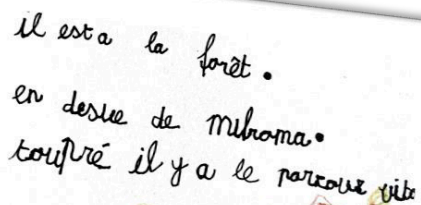 il est a la forêt.
en desue de mihama.
toupré il y a le parcour vite